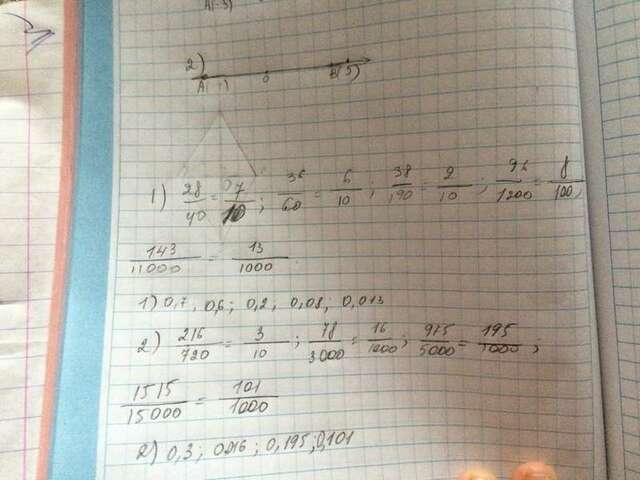 A(-3)
2)
A(-1) 0 B(5)
1) 28/40 = 07/10; 36/60 = 6/10; 38/190 = 2/10; 96/1200 = 8/100,
143/11000 = 13/1000
1) 0,7, 0,6; 0,2, 0,08; 0,013
2) 216/720 = 3/10; 78/3000 = 16/1000; 975/5000 = 195/1000;
1515/15000 = 101/1000
2) 0,3; 0,016; 0,195; 0,101